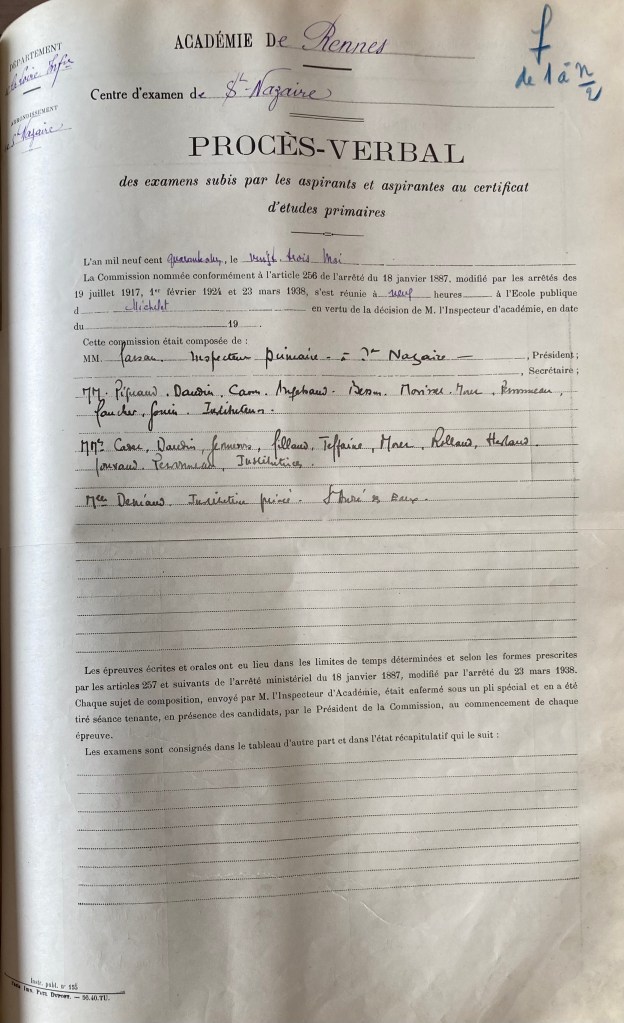 DÉPARTEMENT
de la Loire Infre
ARRONDISSEMENT
St Nazaire
ACADÉMIE De Rennes
f
de 1 à n/2
Centre d'examen de St-Nazaire
PROCÈS-VERBAL
des examens subis par les aspirants et aspirantes au certificat
d'études primaires
L'an mil neuf cent , le vingt-trois Mai
La Commission nommée conformément à l'article 256 de l'arrêté du 18 janvier 1887, modifié par les arrêtés des
19 juillet 1917, 1er février 1924 et 23 mars 1938, s'est réunie à neuf heures à l'École publique
d Michelet en vertu de la décision de M. l'Inspecteur d'académie, en date
du 19 .
Cette commission était composée de :
MM. Inspecteur primaire à St Nazaire , Président ;
, Secrétaire ;
MM. Daudin
Instituteurs.
Mmes Daudin, Rolland,
Institutrices.
Mlle Institutrice privée.
Les épreuves écrites et orales ont eu lieu dans les limites de temps déterminées et selon les formes prescrites
par les articles 257 et suivants de l'arrêté ministériel du 18 janvier 1887, modifié par l'arrêté du 23 mars 1938.
Chaque sujet de composition, envoyé par M. l'Inspecteur d'Académie, était enfermé sous un pli spécial et en a été
tiré séance tenante, en présence des candidats, par le Président de la Commission, au commencement de chaque
épreuve.
Les examens sont consignés dans le tableau d'autre part et dans l'état récapitulatif qui le suit :
Instr. publ. n° 155
Imp. PAUL DUPONT. — 56.40.TU.